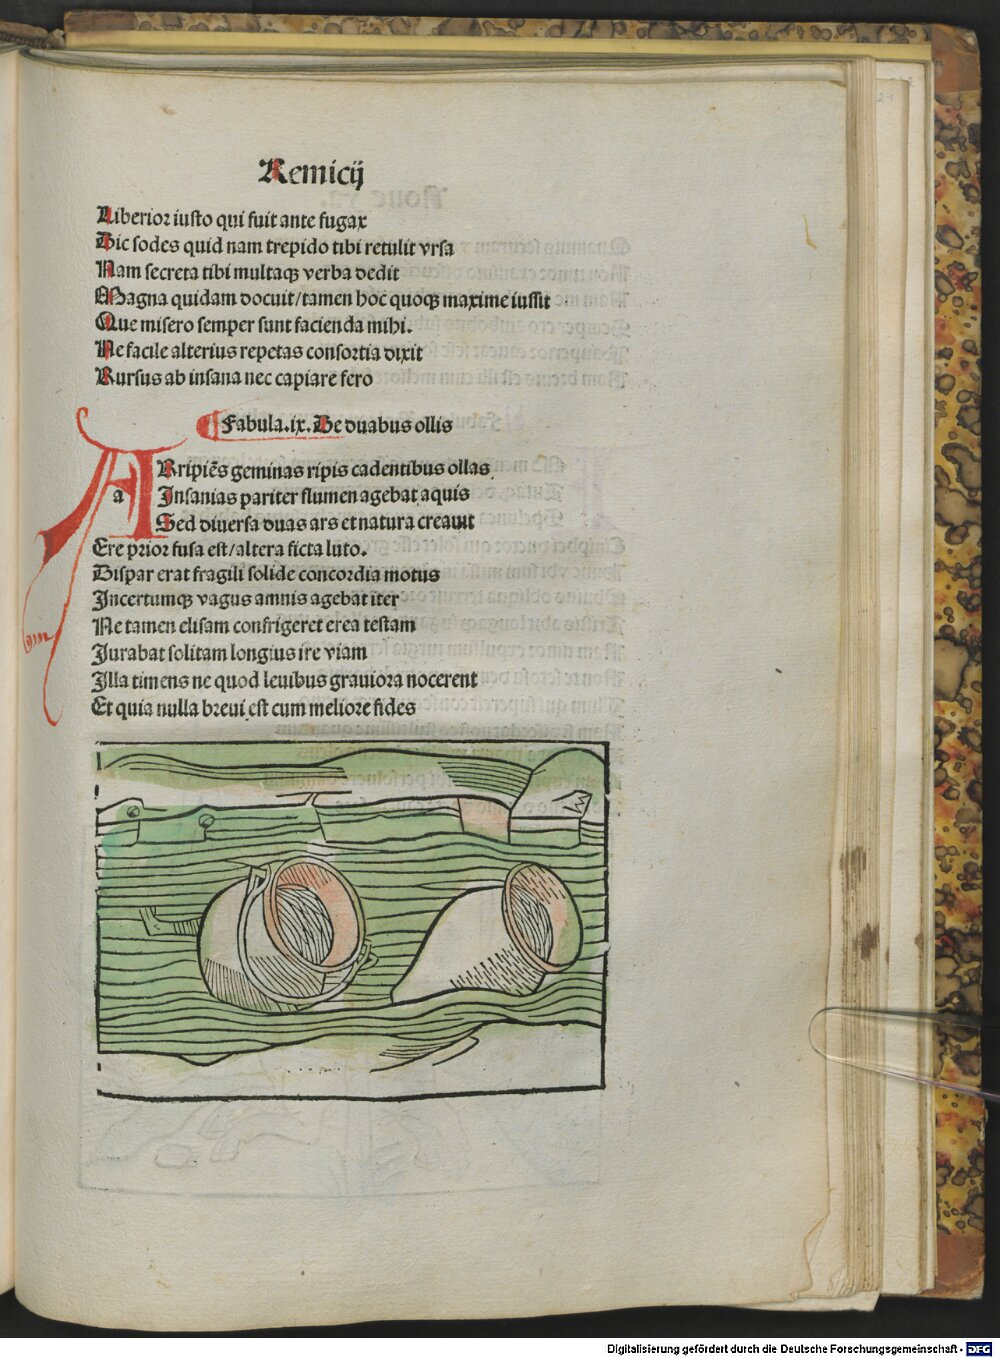 Remicij
Liberior iusto qui fuit ante fugax
Dic sodes quid nam trepido tibi retulit vrsa
Nam secreta tibi multaqȝ verba dedit
Magna quidam docuit/tamen hoc quoqȝ maxime iussit
Que misero semper sunt facienda mihi.
Ne facile alterius repetas consortia dixit
Rursus ab insana nec capiare fero
Fabula.ix. De duabus ollis
A Rripiēs geminas ripis cadentibus ollas
a Insanias pariter flumen agebat aquis
Sed diuersa duas ars et natura creauit
Ere prior fusa est/altera ficta luto.
Dispar erat fragili solide concordia motus
Incertumqȝ vagus amnis agebat iter
Ne tamen elisam confrigeret erea testam
Jurabat solitam longius ire viam
Illa timens ne quod leuibus grauiora nocerent
Et quia nulla breui est cum meliore fides
Digitalisierung gefördert durch die Deutsche Forschungsgemeinschaft - DFG